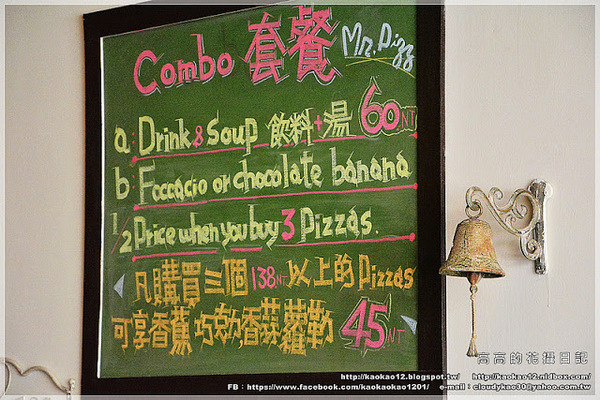 Combo 套餐 Mr. Pizz
a: Drink & Soup 飲料+湯 60NT
b: Foccacio or chocolate banana
1/2 Price when you buy 3 Pizzas.
凡購買三個138NT以上的Pizzas
可享香蕉巧款香菜蘿勒 45NT
高高的花攝日記
http://kaokao12.blogspot.tw/ http://kaokao12.nidbox.com/
FB：https://www.facebook.com/kaokaokao1201/ e-mail：cloudykao30@yahoo.com.tw